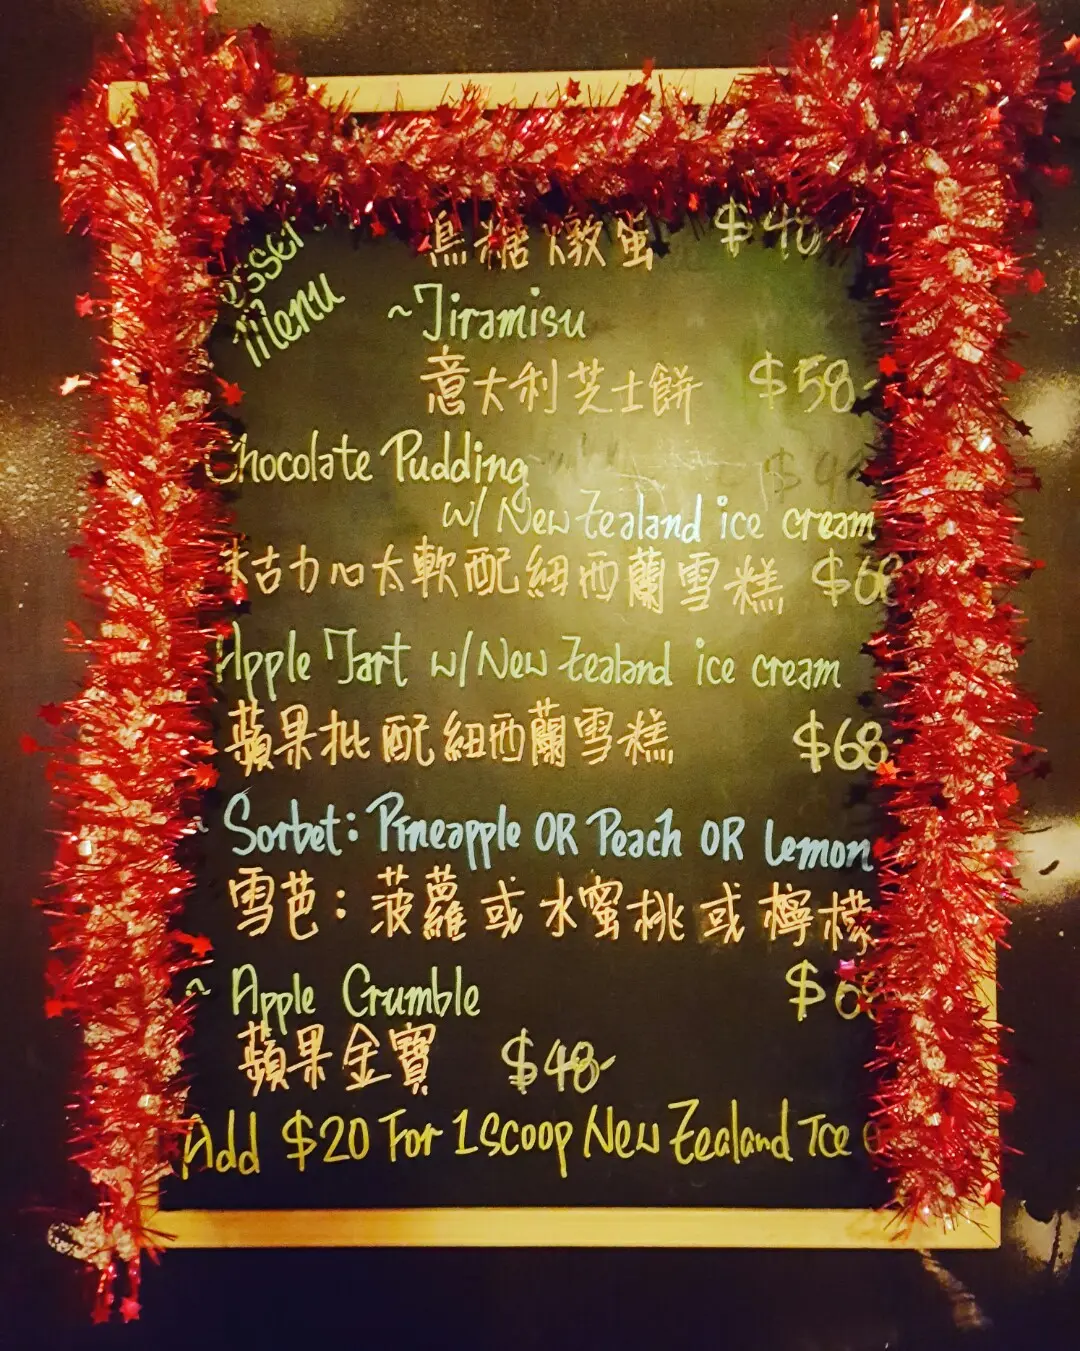 Menu
烏糖燉蛋 $40
~Tiramisu
意大利芝士餅 $58-
Chocolate Pudding
w/ New Zealand ice cream
朱古力心太軟配紐西蘭雪糕 $68
Apple Tart w/ New Zealand ice cream
蘋果批配紐西蘭雪糕 $68-
~ Sorbet: Pineapple OR Peach OR Lemon
雪芭：菠蘿或水蜜桃或檸檬
~ Apple Crumble
蘋果金寶 $48-
Add $20 For 1 scoop New Zealand Ice